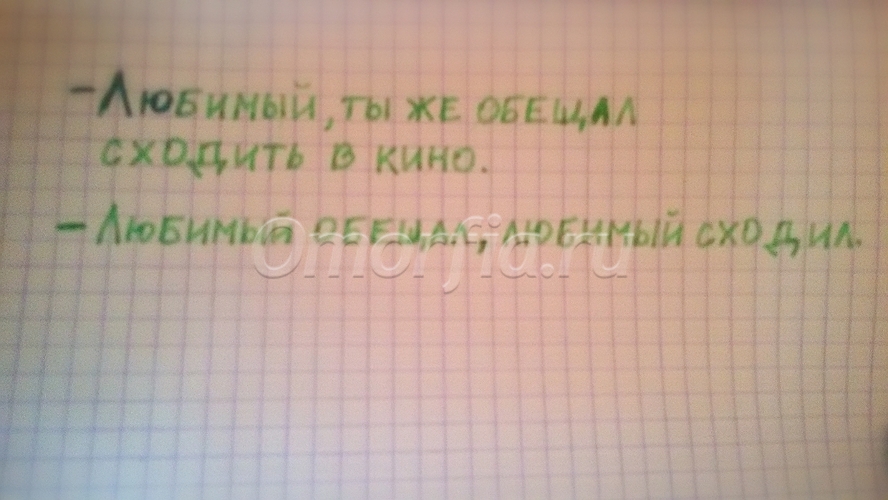 - Любимый, ты же обещал
сходить в кино.
- Любимый обещал, любимый сходил.
Omorfia.ru